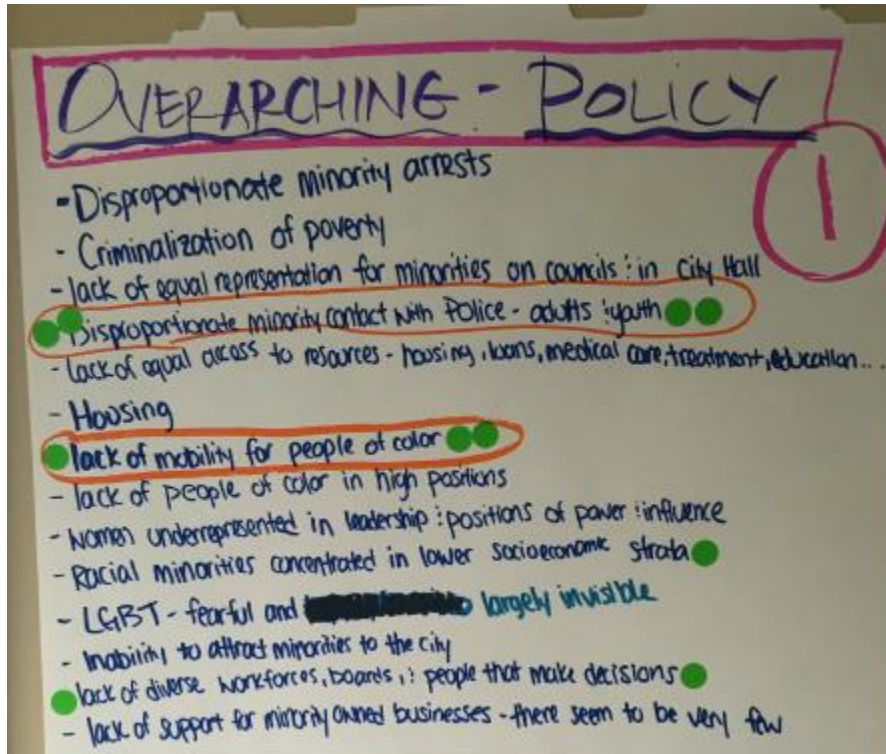 OVERARCHING - POLICY
1
- Disproportionate minority arrests
- Criminalization of poverty
- lack of equal representation for minorities on councils & in City Hall
Disproportionate minority contact with Police - adults & youth
- Lack of equal access to resources - housing, loans, medical care, treatment, education...
- Housing
lack of mobility for people of color
- lack of people of color in high positions
- women underrepresented in leadership & positions of power & influence
- Racial minorities concentrated in lower socioeconomic strata
- LGBT - fearful and largely invisible
- Inability to attract minorities to the city
lack of diverse workforces, boards, & people that make decisions
- lack of support for minority owned businesses - there seem to be very few